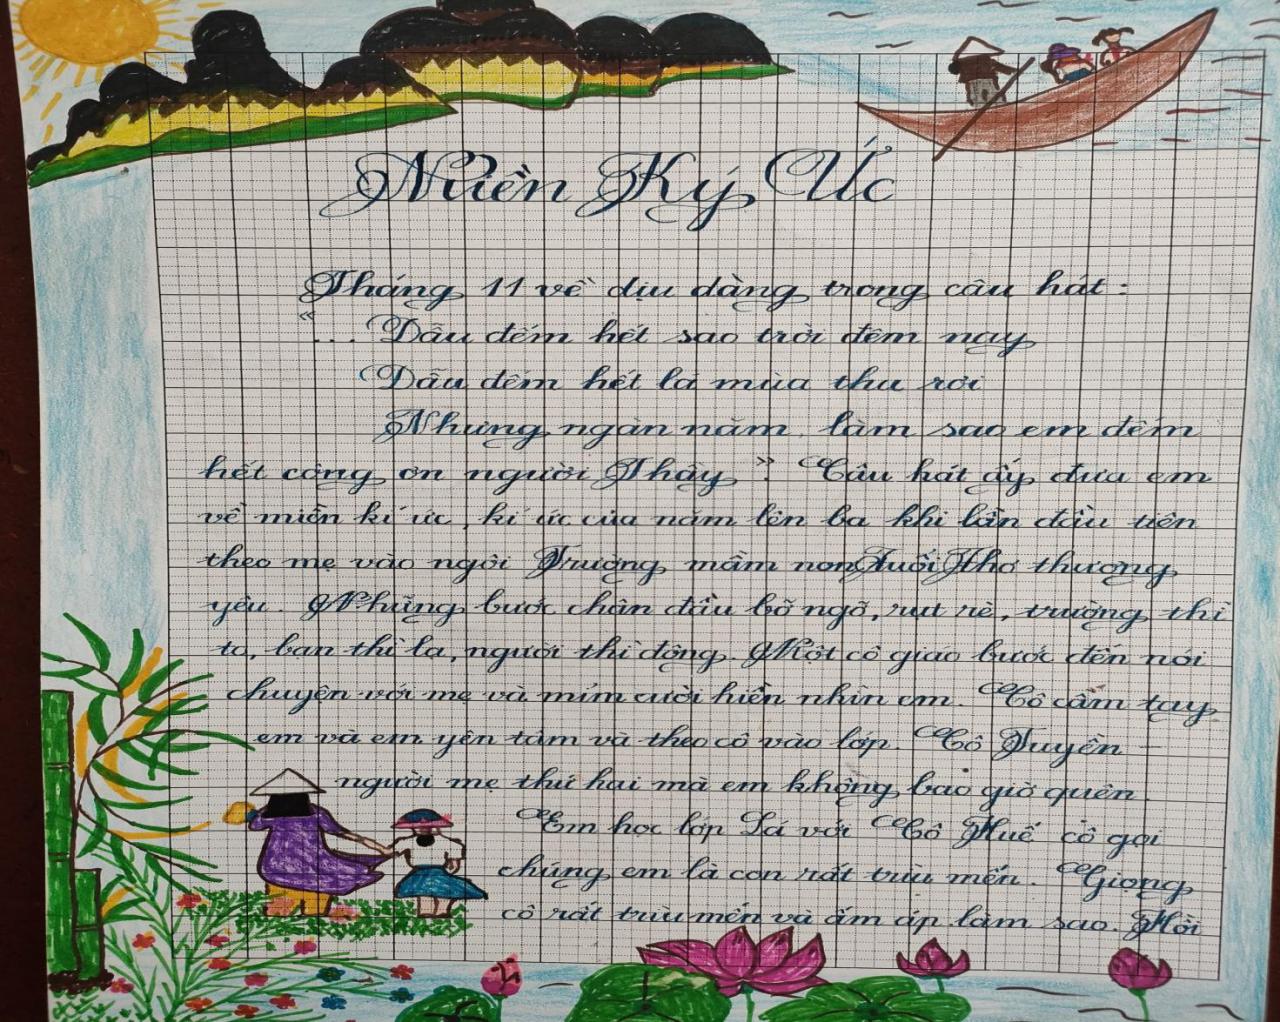 Miền Ký Ức
Tháng 11 về dịu dàng trong câu hát:
"... Dẫu đếm hết sao trời đêm nay
Dẫu đếm hết lá mùa thu rơi
Nhưng ngàn năm, làm sao em đếm
hết công ơn người Thầy". Câu hát ấy đưa em
về miền kí ức, kí ức của năm lên ba khi lần đầu tiên
theo mẹ vào ngôi Trường mầm non Tuổi Thơ thương
yêu. Những bước chân đầu bỡ ngỡ, rụt rè, trường thì
to, bạn thì lạ, người thì đông. Một cô giáo bước đến nói
chuyện với mẹ và mỉm cười hiền nhìn em. Cô cầm tay
em và em yên tâm và theo cô vào lớp. Cô Tuyền -
người mẹ thứ hai mà em không bao giờ quên.
Em học lớp Lá với Cô Huế cô gọi
chúng em là con rất trìu mến. Giọng
cô rất trìu mến và ấm áp làm sao. Hồi